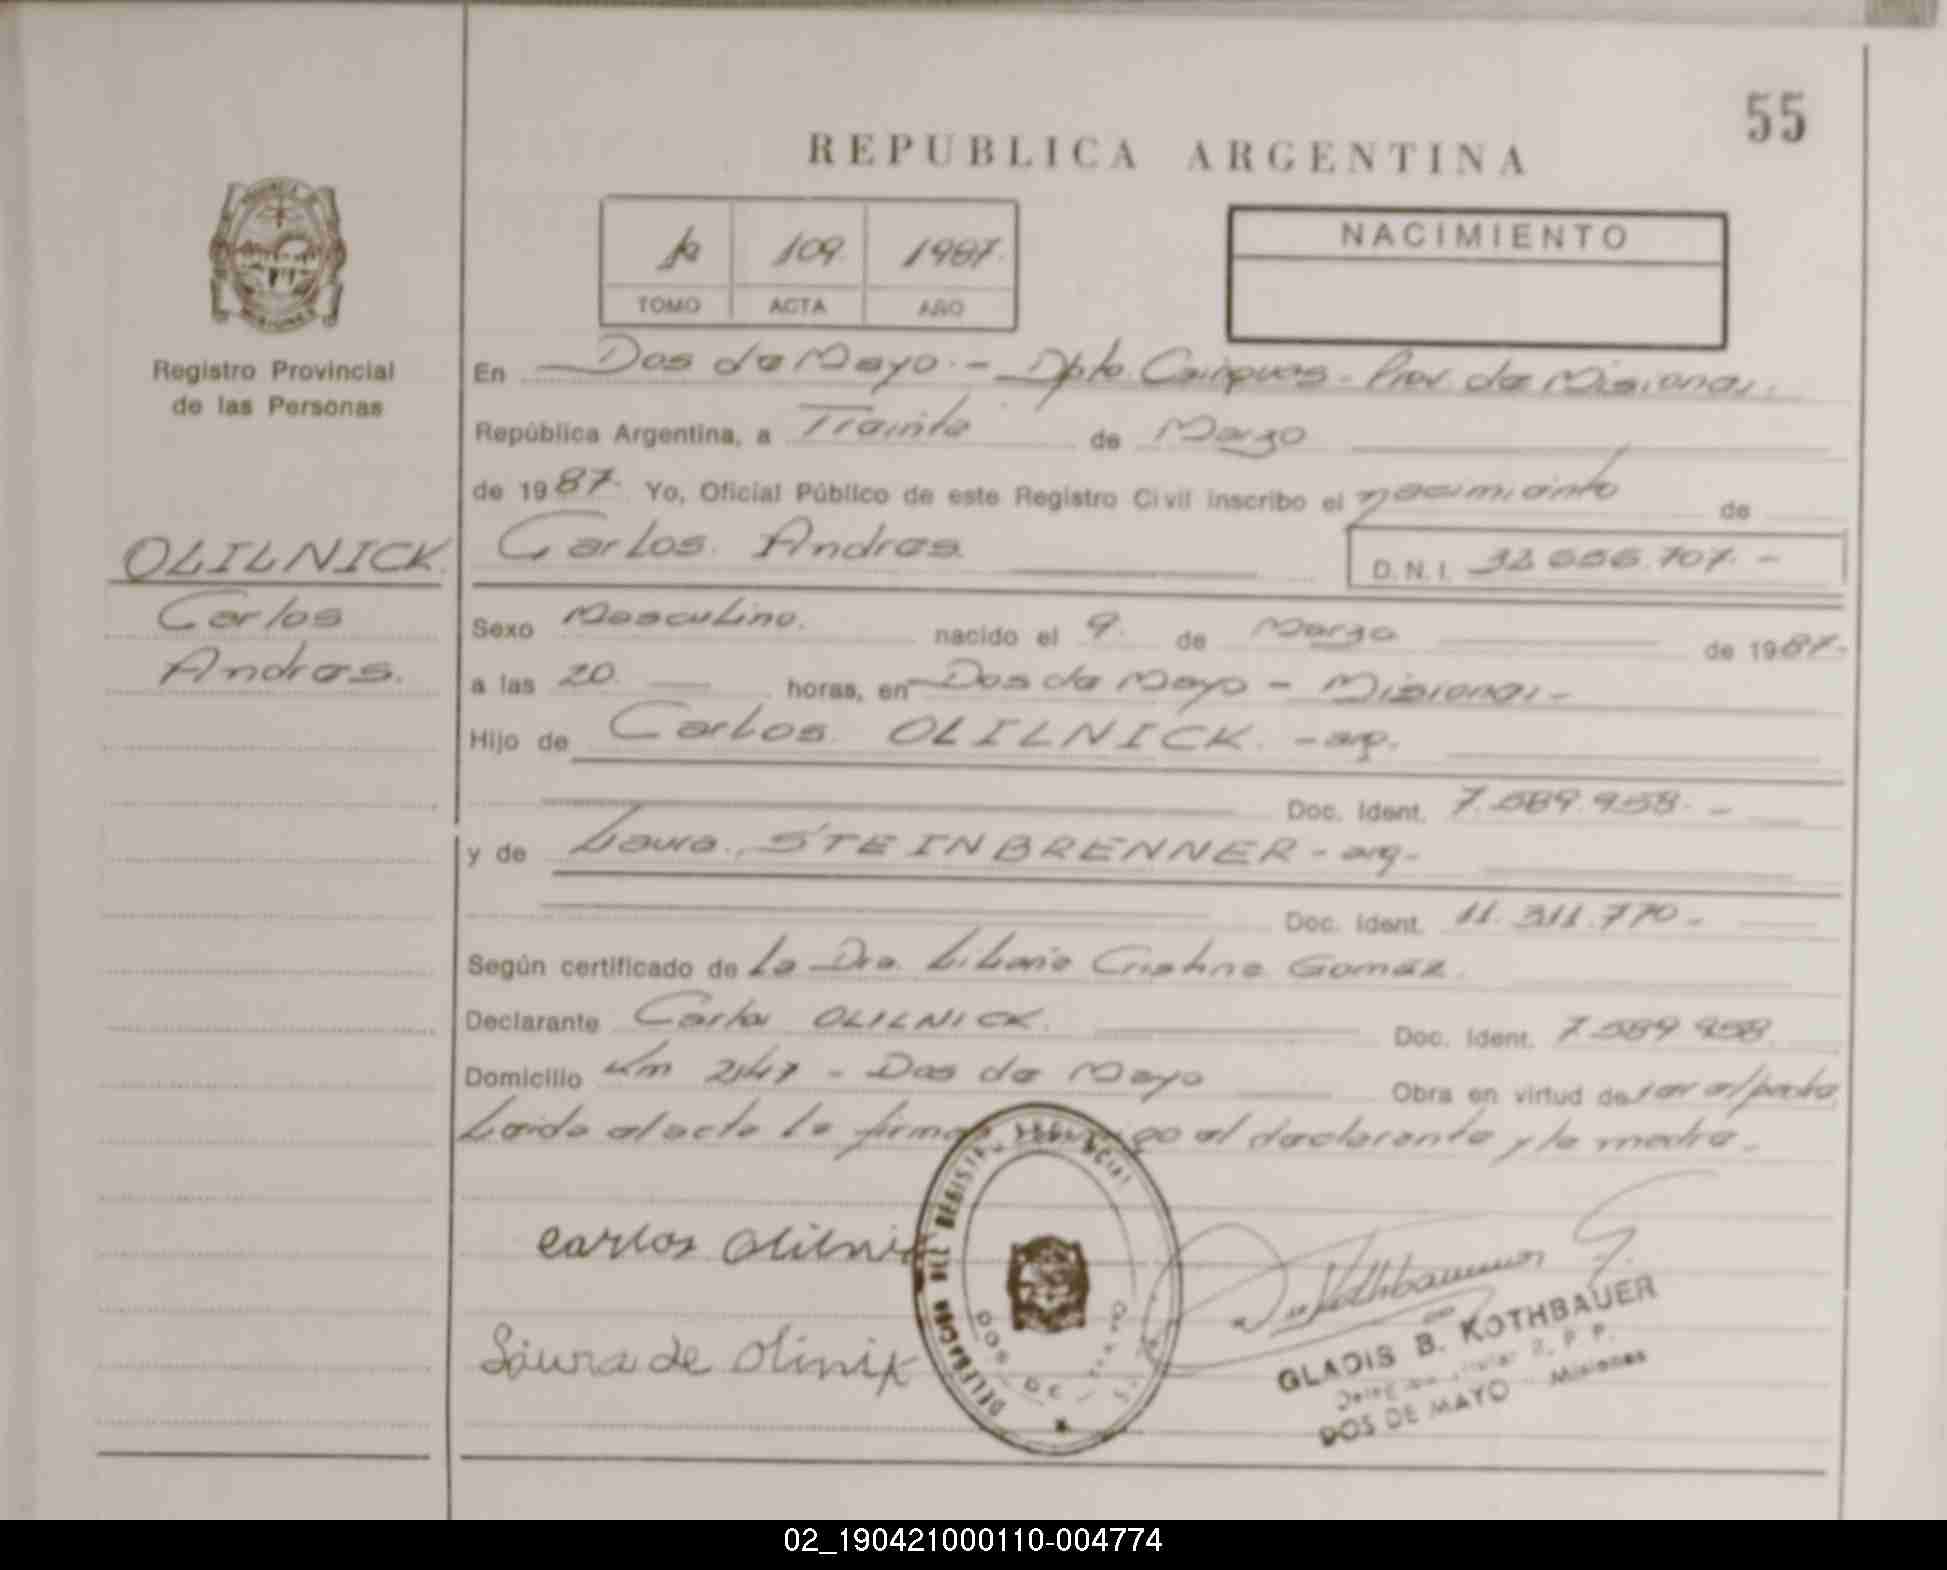 55
REPUBLICA ARGENTINA
109. 1987.
TOMO ACTA AÑO
NACIMIENTO
MISIONES
Registro Provincial
de las Personas
En Dos de Mayo. - Dpto. Cainguas - Prov. de Misiones.
República Argentina, a Treinta de Marzo
de 1987. Yo, Oficial Público de este Registro Civil inscribo el nacimiento de
OLILNICK.
Carlos
Andres.
Carlos. Andres.
D. N. I. 32.656.707. -
Sexo Masculino. nacido el 9. de Marzo de 1987.-
a las 20. horas, en Dos de Mayo - Misiones -
Hijo de Carlos. OLILNICK. - arg.
Doc. Ident. 7.589.958. -
y de Laura. STEINBRENNER - arg -
Doc. Ident. 11.311.770 -
Según certificado de La Dra. Liliana Cristina Gomez.
Declarante Carlos OLILNICK. Doc. Ident. 7.589.958.
Domicilio Km 247 - Dos de Mayo Obra en virtud de ser el padre
Leida el acta la firma conmigo el declarante y la madre -
Carlos Olilnic
Laura de Olinik
DELEGACION DEL REGISTRO PROVINCIAL
DOS DE MAYO
Kothbauer
GLADIS B. KOTHBAUER
DOS DE MAYO - Misiones
02_190421000110-004774